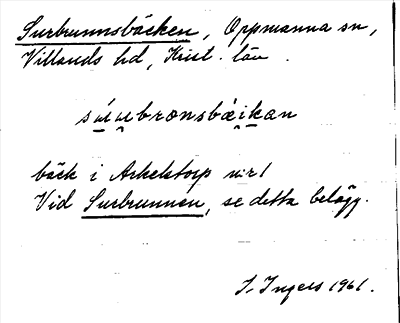 Surbrunnsbäcken, Oppmanna sn,
Villands hd, Krist. län.
súu̯bronsbái̯kan
bäck i Arkelstorp nr 1
Vid Surbrunnen, se detta belägg.
I. Ingers 1961.